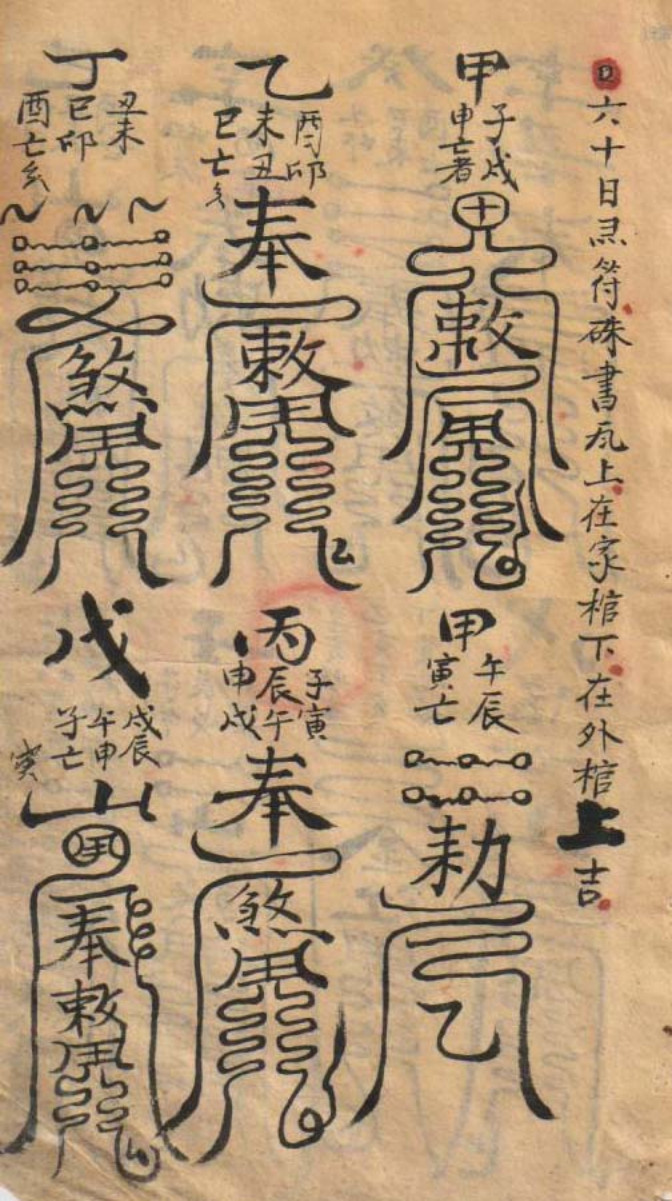 六十日符硃書瓦上在家棺下在外棺上吉
甲
子戌
申亡者
敕
乙
酉卯
未丑
巳亡
奉
敕
丁
丑未
巳卯
酉亡
煞
甲
午辰
寅亡
勅
乙
丙
子寅
辰午
申戌
奉
煞
戊
戌辰
午申
子亡
寅
山
奉
敕